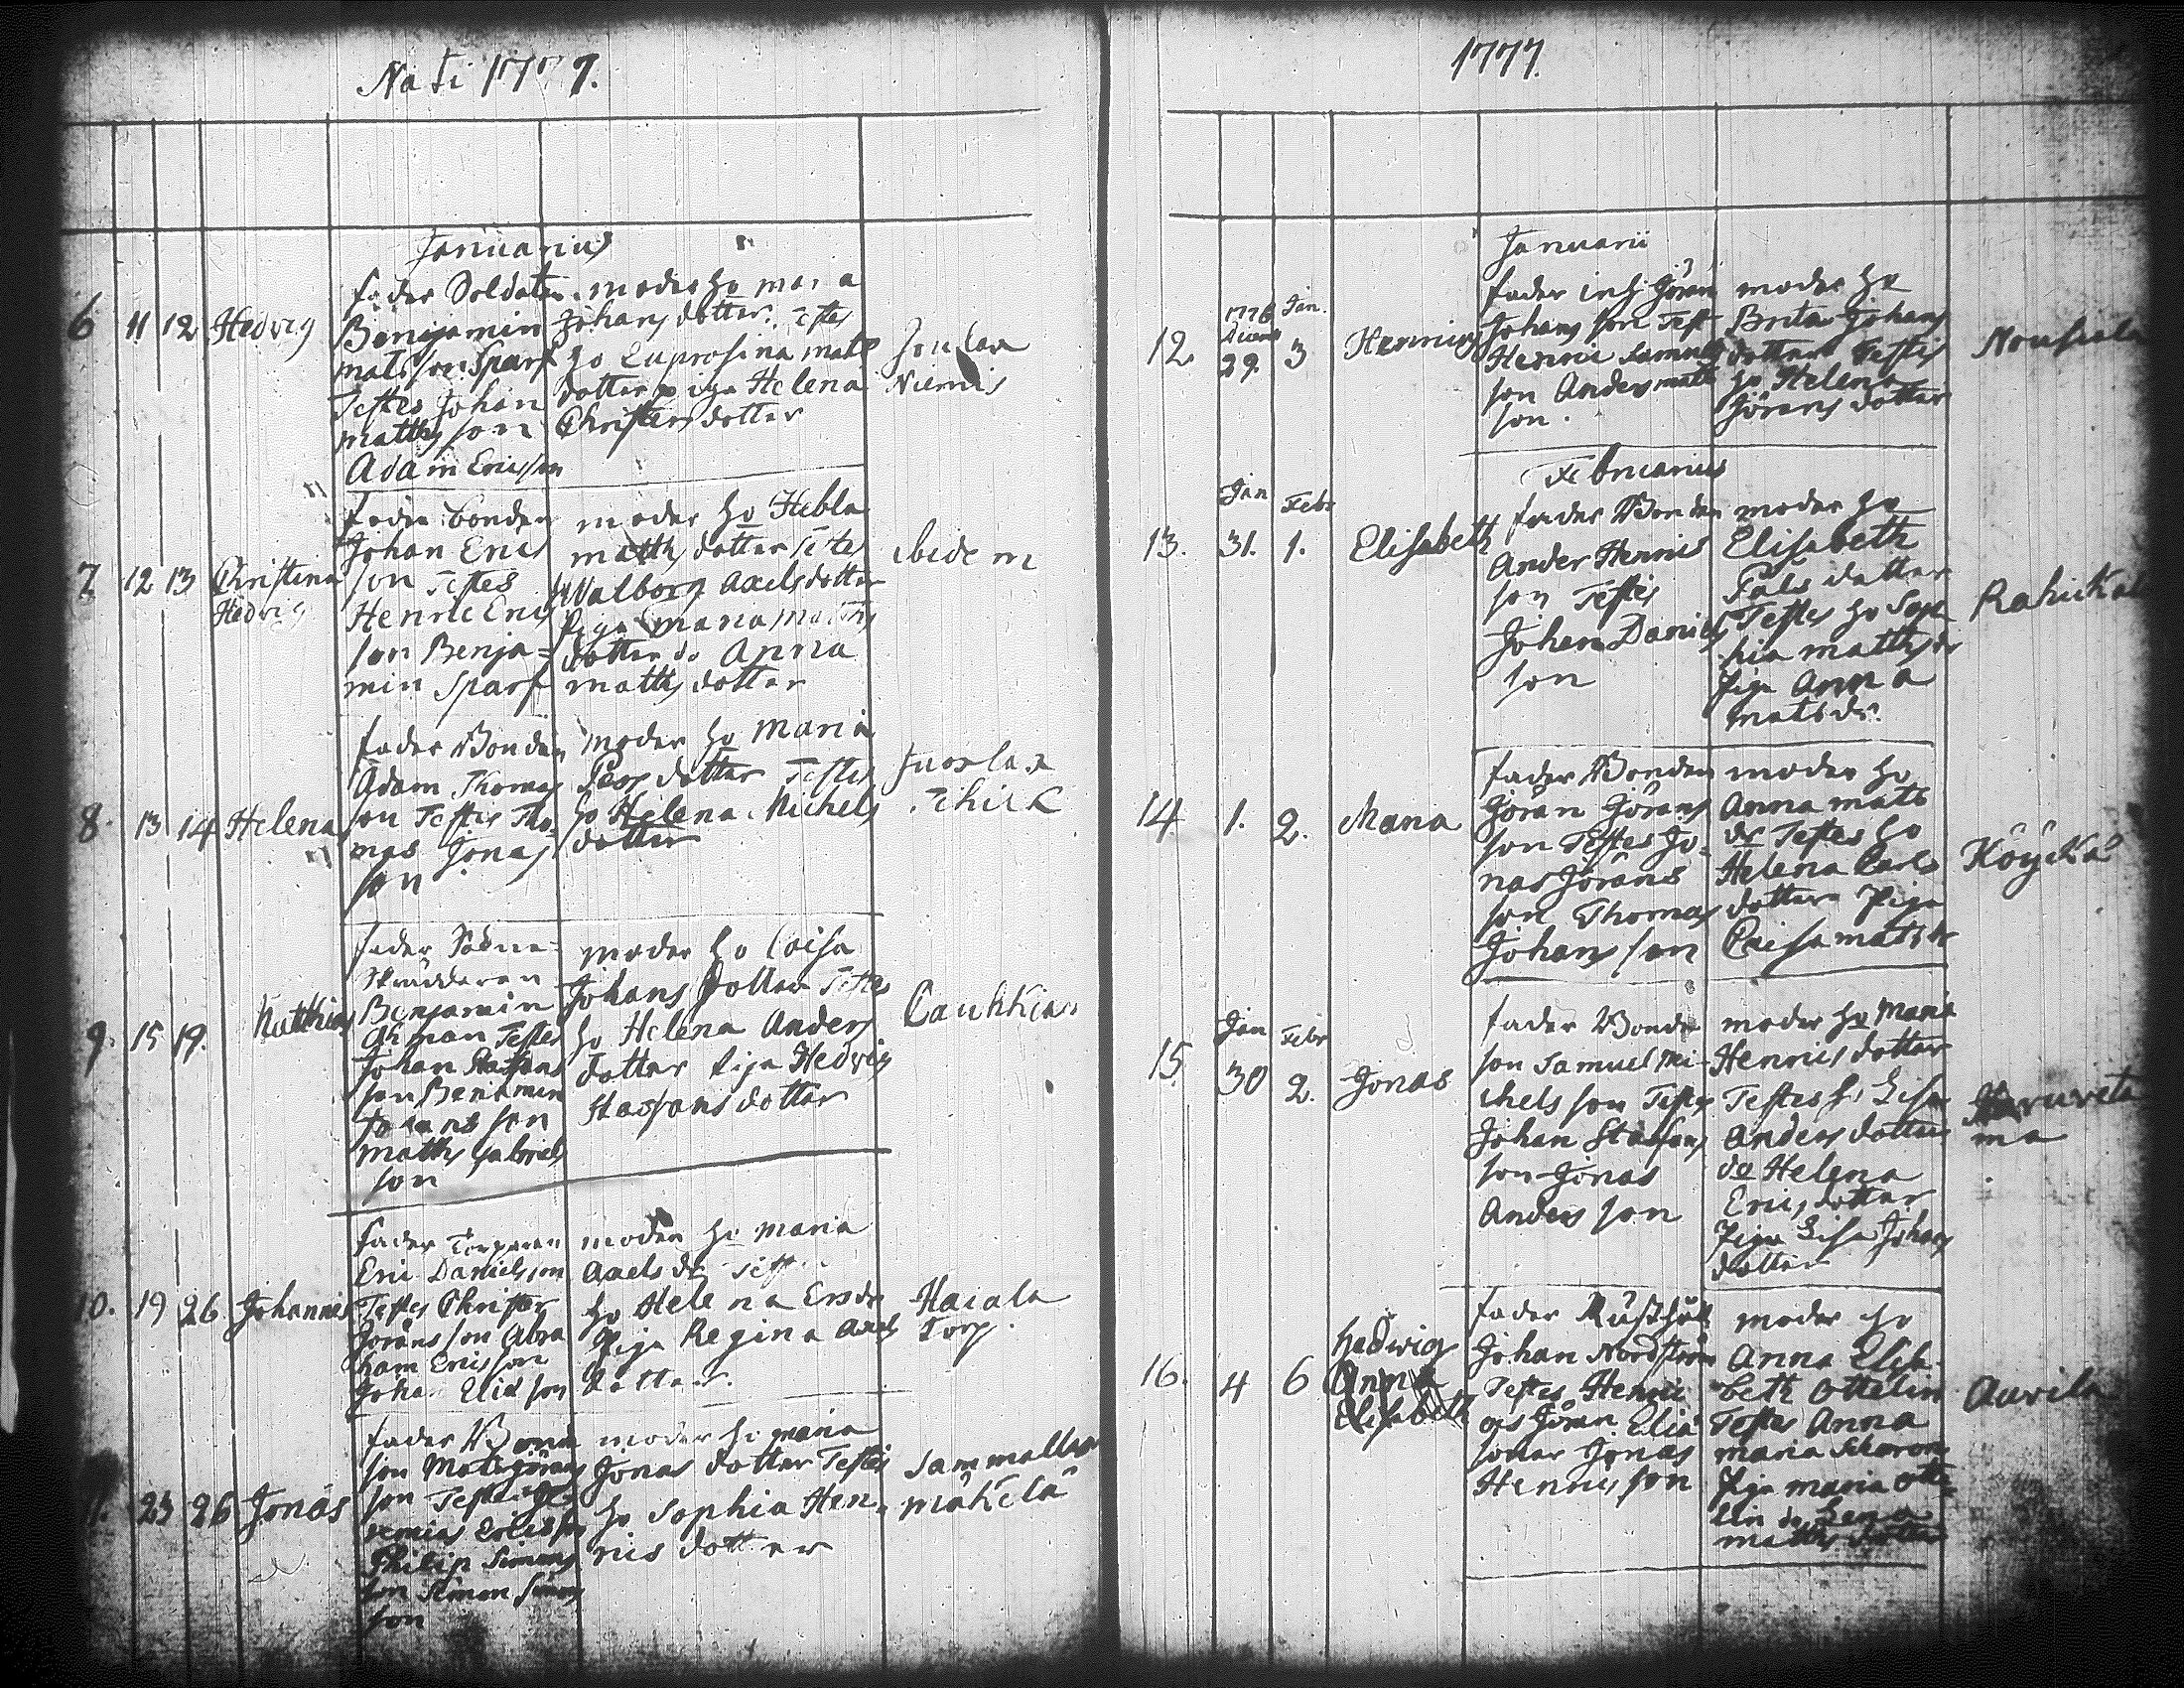 Nati 1777.
Januarius
6 11 12 Hedvig
fader Soldaten
Benjamin
mats son Sparf
Testes Johan
matths son
Adam Ericsson
moder ho maria
Johans dotter. Testes
ho Euprosina mats
dotter piga Helena
Christers dotter
Niemis
7 12 13 Christina
Hedvig
fader bonden
Johan Erics
son Testes
Henric Erics
son Benja=
min Sparf
moder ho Hebla
matths dotter Testes
Walborg Axelsdotter
Piga maria matths
dotter do Anna
matths dotter
ibidem
8. 13 14 Helena
fader Bonden
Adam Thomas
son Testes Tho=
mas Jonas
son
moder ho Maria
dotter Testes
ho Helena Michels
dotter
9. 15 19. Matthias
fader Sockne=
skräddaren
Benjamin
Öhman Testes
Johan Staffans
son Benjamin
Johans son
matths Gabriels
son
moder ho Caisa
Johans Dotter Testes
ho Helena Anders
dotter Piga Hedvig
Staffans dotter
Laukkias
10. 19 26 Johannes
fader Torparen
Eric Danielsson
Testes Christer
Jörans son Abra
ham Ericsson
Johan Elias son
moder ho Maria
Axels dr Test
ho Helena Ersdr
Piga Regina Axels
dotter.
Haiala
Torp.
23 26 Jonas
fader Bonde
son Mats Jörans
son Testes Je
remias Ericsson
Philip Simons
son Simon Simons
son
moder ho maria
Jonas dotter Testes
ho Sophia Hen=
rics dotter
Sammallion
mäkelä
1777.
Januarii
12. 1776 Decemb 29. Jan. 3 Henricus
fader inh Jöran
Johans son Test
Henric Samuels
son Anders matts
son.
moder ho
Brita Johans
dotter Testes
ho Helena
Jörans dotter
Nousiala
Februarius
13. Jan 31. Febr 1. Elisabeth
fader Bonden
Ander Henrics
son Testes
Johan Daniels
son
moder ho
Elisabeth
Påls dotter
Testes ho Sop
hia matths dr
Piga Anna
mats dr.
14 1. 2. Maria
fader Bonden
Jöran Jörans
son Testes Jo=
nas Jörans
son Thomas
Johans son
moder ho
Anna mats
dr Testes ho
Helena Carls
dotter Piga
Caisa mats dr
Köykkä
15. Jan 30 Febr 2. Jonas
fader Bonde
son Samuel Mi=
chels son Testes
Johan Staffans
son Jonas
Anders son
moder ho Maria
Henrics dotter
Testes ho Lisa
Anders dotter
do Helena
Erics dotter
Piga Lisa Johans
dotter
16. 4 6 Hedwig
Anna
Elisabeth
fader Rusthål
Johan Nordström
Testes Henric
os Jöran Elia
söner Jonas
Henrics son
moder ho
Anna Elisa=
beth Ottelin
Testes Anna
maria
Piga maria Otte=
lin do Lena
matths dotter
Auvila